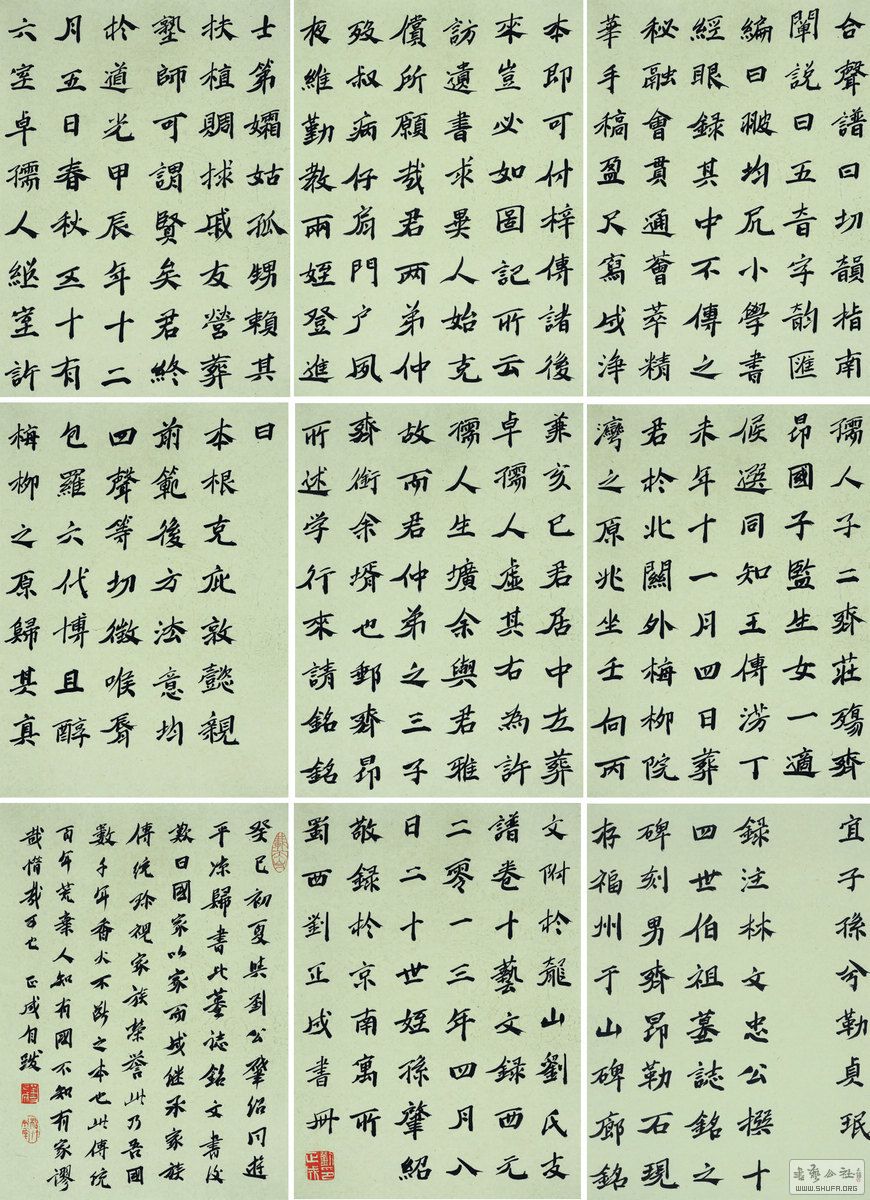 合聲譜曰切韻指南
闡說曰五音字韵匯
編曰均凥小學書
經眼録其中不傳之
秘融會貫通薈萃精
華手稿盈尺寫成淨
本即可付梓傳諸後
來豈必如圖記所云
訪遺書求異人始克
償所願哉君兩弟仲
歿叔病仔肩門户夙
夜維勤教兩姪登進
士第孀姑孤甥賴其
扶植賙捄戚友營葬
塾師可謂賢矣君終
於道光甲辰年十二
月五日春秋五十有
六室卓孺人繼室許
孺人子二齊莊殤齊
昂國子監生女一適
候選同知王傳涝丁
未年十一月四日葬
君於北關外梅柳院
灣之原兆坐壬向丙
兼亥巳君居中左葬
卓孺人虛其右為許
孺人生壙余與君雅
故而君仲弟之三子
齊銜余壻也郵齊昂
所述学行來請銘銘
曰
本根克庇敦懿親
前範後方法意均
四聲等切徵喉脣
包羅六代博且醇
梅柳之原歸其真
宜子孫兮勒貞珉
録注林文忠公撰十
四世伯祖墓誌銘之
碑刻男齊昂勒石現
存福州于山碑廊銘
文附於龍山劉氏支
譜卷十藝文録西元
二零一三年四月八
日二十世姪孫肇紹
敬録於京南寓所
蜀西劉正成書冊
癸巳初夏與劉公肇紹同遊
平凉歸書此墓誌銘文書後
歎曰國家以家而成繼承家族
傳統珍視家族榮譽此乃吾國
數千年香火不斷之本也此傳統
百年荒棄人知有國不知有家謬
哉惜哉可也 正成自跋
WWW.SHUFA.ORG